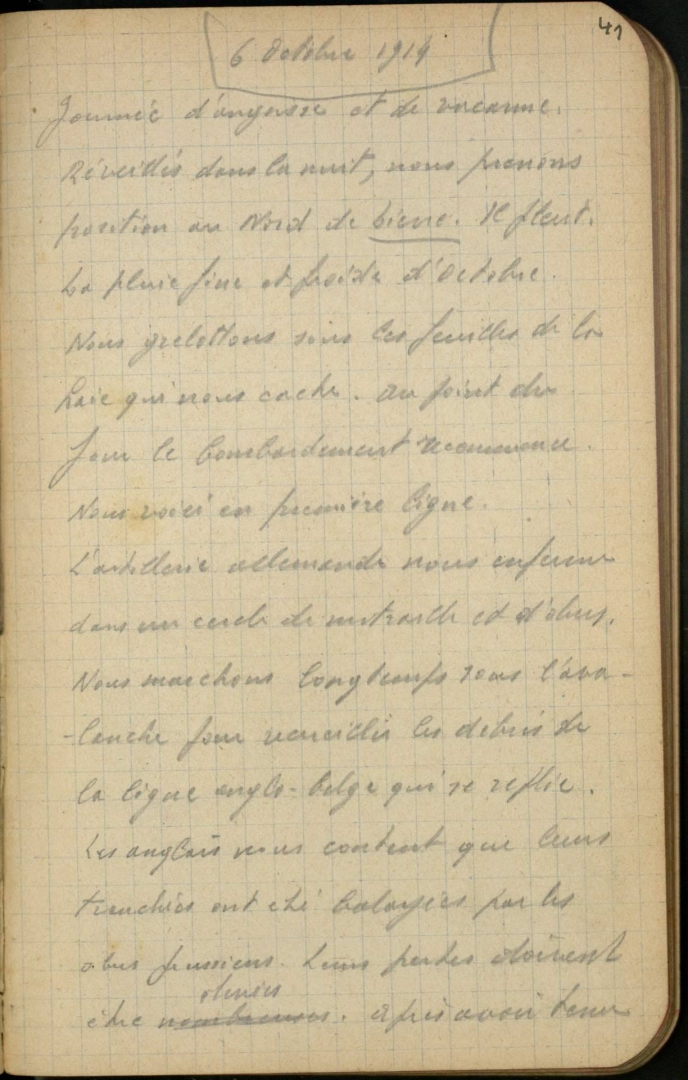 41
6 Octobre 1914
Journée d'angoisse et de vacarme.
Réveillés dans la nuit, nous prenons
position au Nord de Lierre. Il pleut.
La pluie fine et froide d'Octobre.
Nous grelottons sous les feuilles de la
haie qui nous cache. Au point du
jour le bombardement recommence.
Nous voici en première ligne.
L'artillerie allemande nous enferme
dans un cercle de mitraille et d'obus.
Nous marchons longtemps sous l'ava-
-lanche pour recueillir les débris de
la ligne anglo-belge qui se replie.
Les anglais nous content que leurs
tranchées ont été balayées par les
obus prussiens. Leurs pertes doivent
être nombreuses. Après avoir tenu